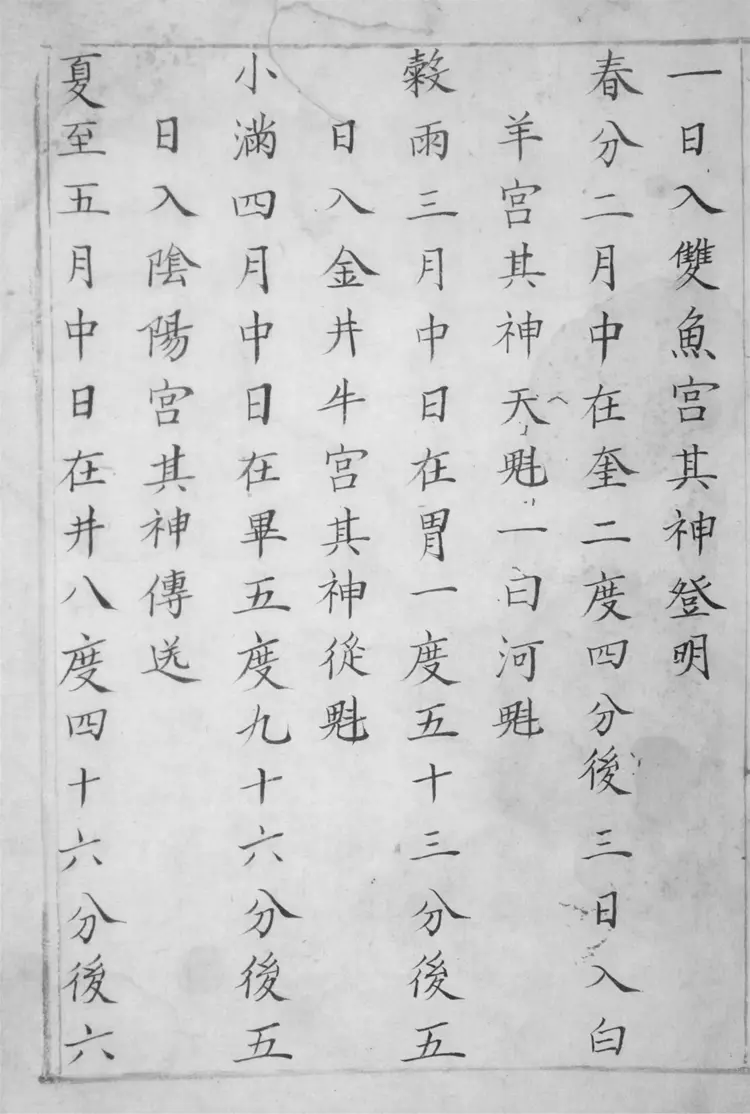 一日入雙魚宮其神登明
春分二月中在奎二度四分後三日入白
羊宮其神天魁一曰河魁
穀雨三月中日在胃一度五十三分後五
日入金井牛宮其神從魁
小滿四月中日在畢五度九十六分後五
日入陰陽宮其神傳送
夏至五月中日在井八度四十六分後六